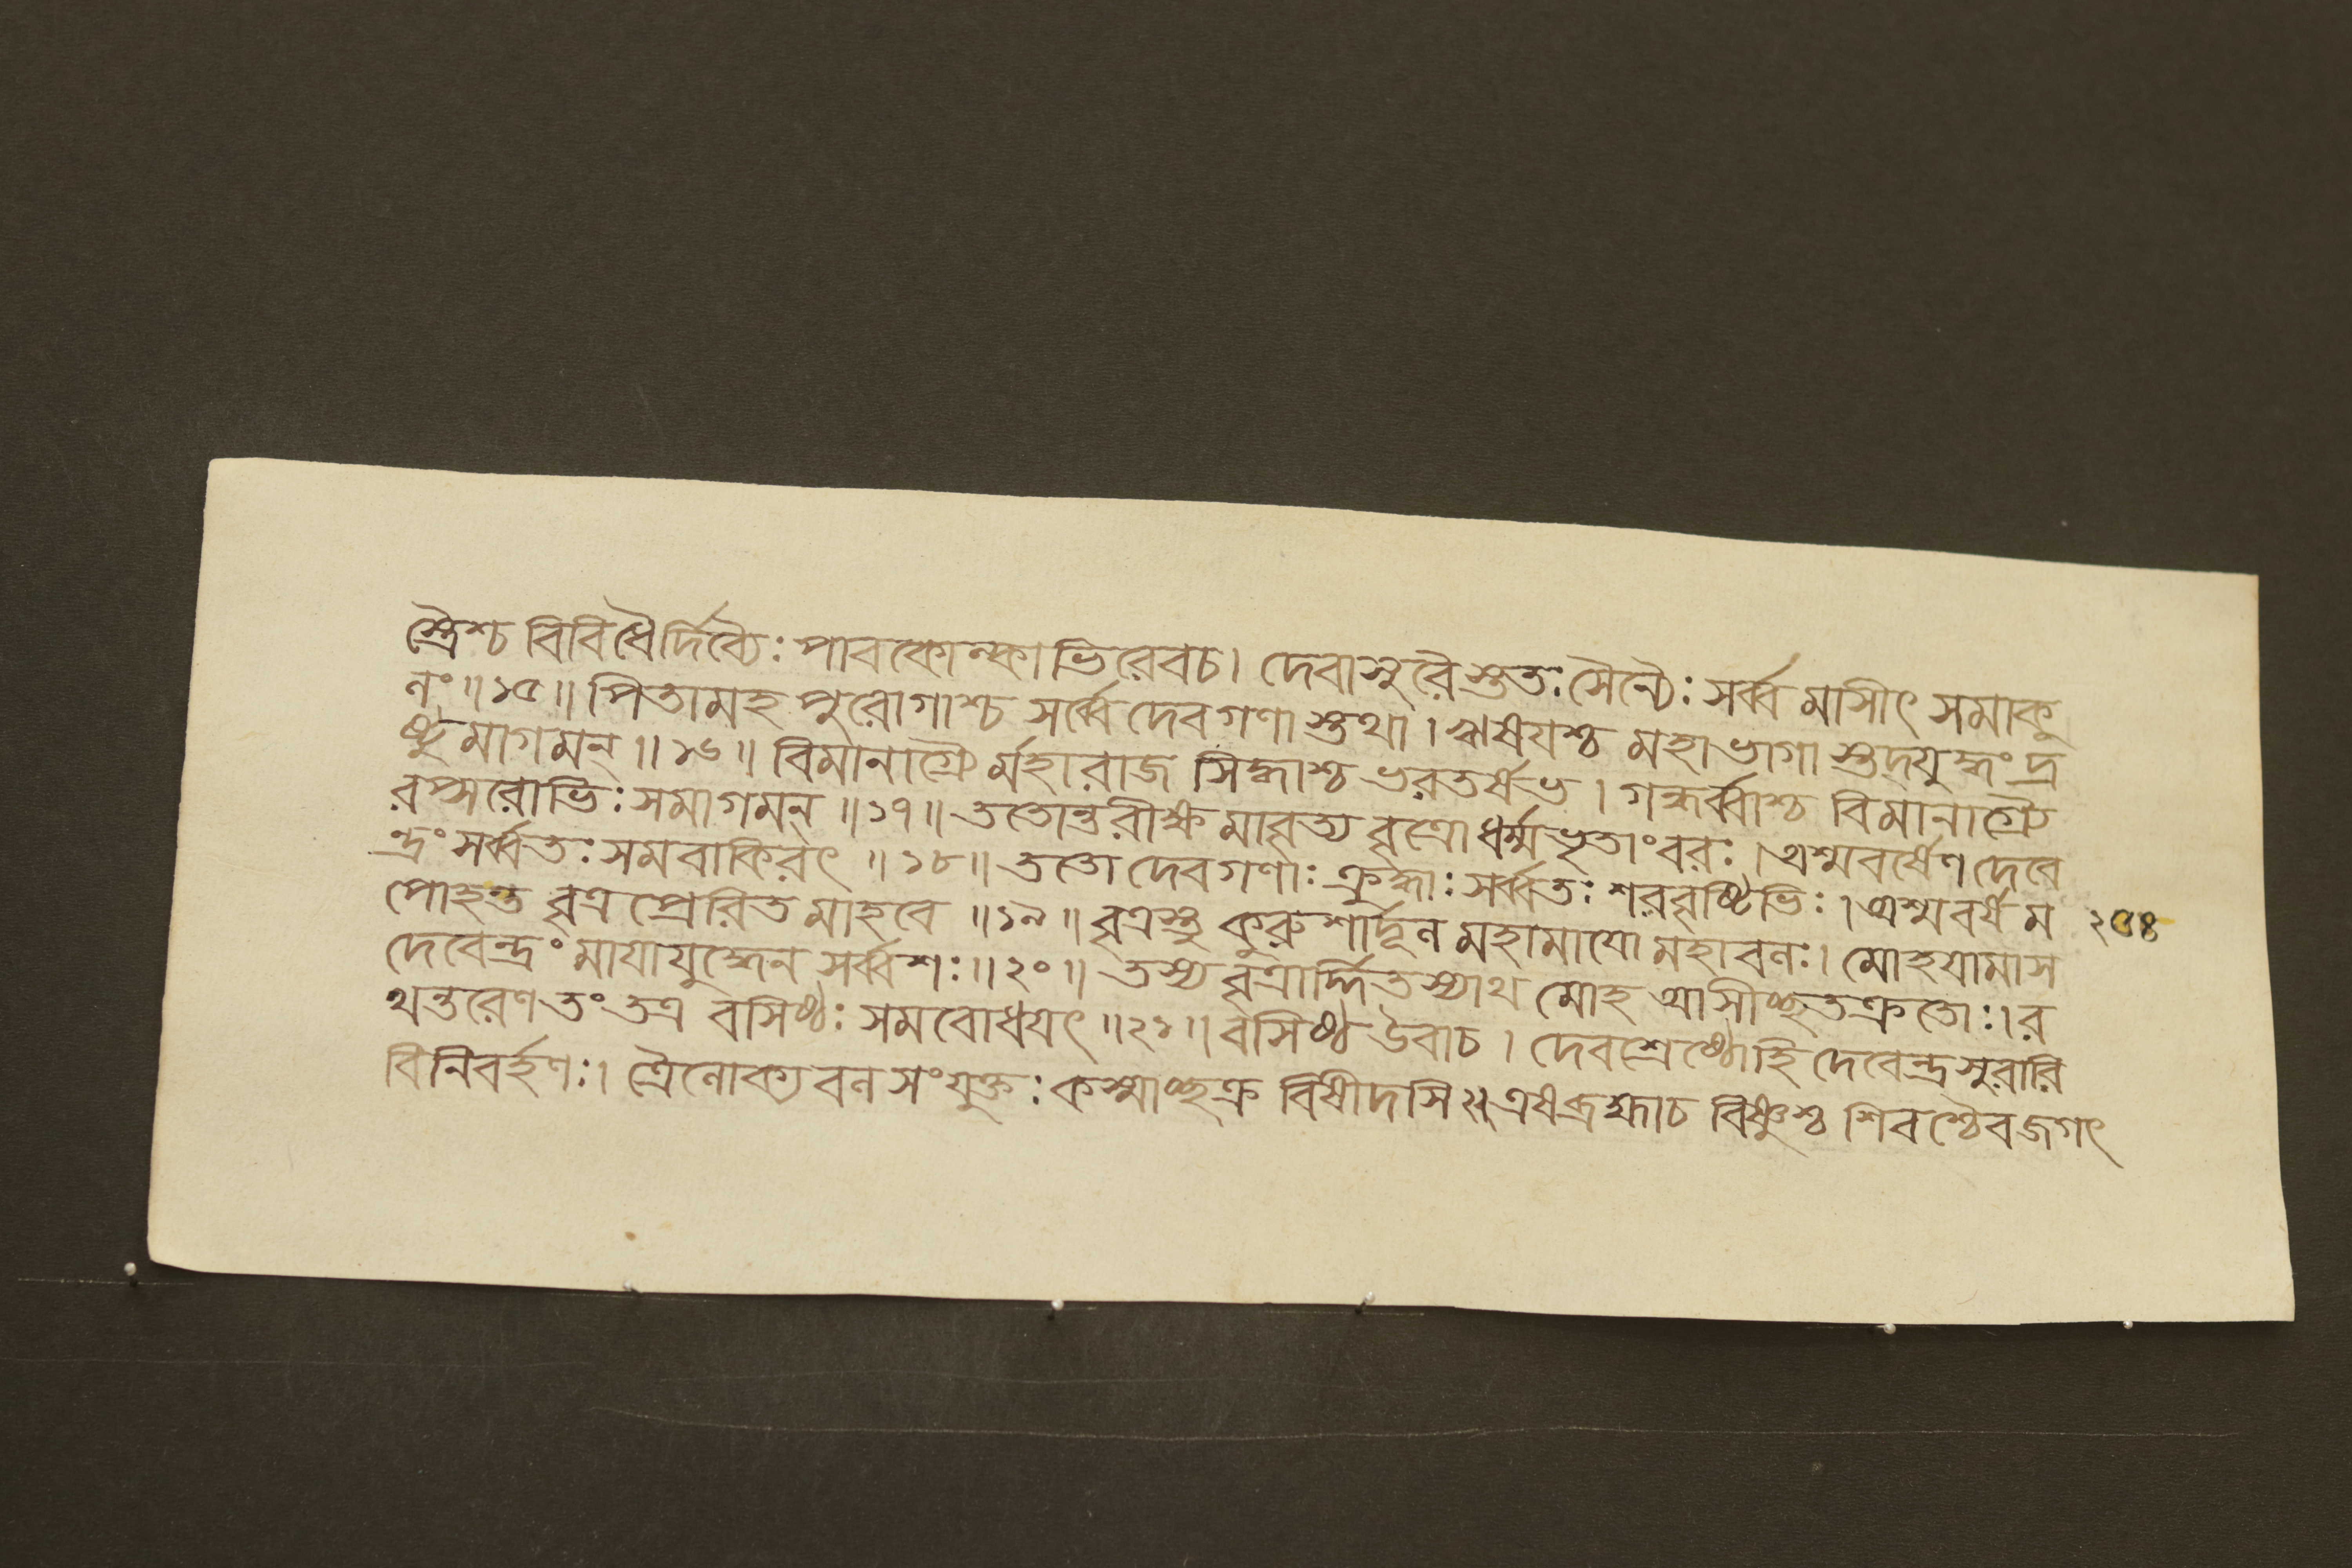 স্ত্রৈশ্চ বিবিধৈর্দিব্যৈঃ পাবকোল্কাভিরেবচ। দেবাসুরৈস্ততঃ সৈন্যৈঃ সর্ব্বমাসীৎ সমাকু
লং॥১৫॥ পিতামহ পুরোগাশ্চ সর্ব্বে দেবগণাস্তথা। ঋষযশ্চ মহাভাগাস্তদ্যুদ্ধং দ্র
ষ্টুমাগমন্॥১৬॥ বিমানাগ্রৈর্মহারাজ সিদ্ধাশ্চ ভরতর্ষভ। গন্ধর্ব্বাশ্চ বিমানাগ্রৈ
রপ্সরোভিঃ সমাগমন্॥১৭॥ ততোন্তরীক্ষমাবৃত্য বৃত্রো ধর্ম্মভৃতাংবরঃ। অশ্মবর্ষেণ দেবে
ন্দ্রং সর্ব্বতঃ সমবাকিরৎ॥১৮॥ ততো দেবগণাঃ ক্রুদ্ধাঃ সর্ব্বতঃ শরবৃষ্টিভিঃ। অশ্মবর্ষম ২৫৪
পোহন্ত বৃত্রপ্রেরিতমাহবে॥১৯॥ বৃত্রস্তু কুরুশার্দূল মহামাযো মহাবলঃ। মোহযামাস
দেবেন্দ্রং মাযাযুদ্ধেন সর্ব্বশঃ॥২০॥ তস্য বৃত্রার্দ্দিতস্যাথ মোহ আসীচ্ছতক্রতোঃ। র
থন্তরেণ তং তত্র বসিষ্ঠঃ সমবোধযৎ॥২১॥ বসিষ্ঠ উবাচ। দেবশ্রেষ্ঠোহি দেবেন্দ্র সুরারি
বিনিবর্হণঃ। ত্রৈলোক্যবলসংযুক্তঃ কস্মাচ্ছক্র বিষীদসি॥ এষব্রহ্মাচ বিষ্ণুশ্চ শিবশ্চৈবজগৎ